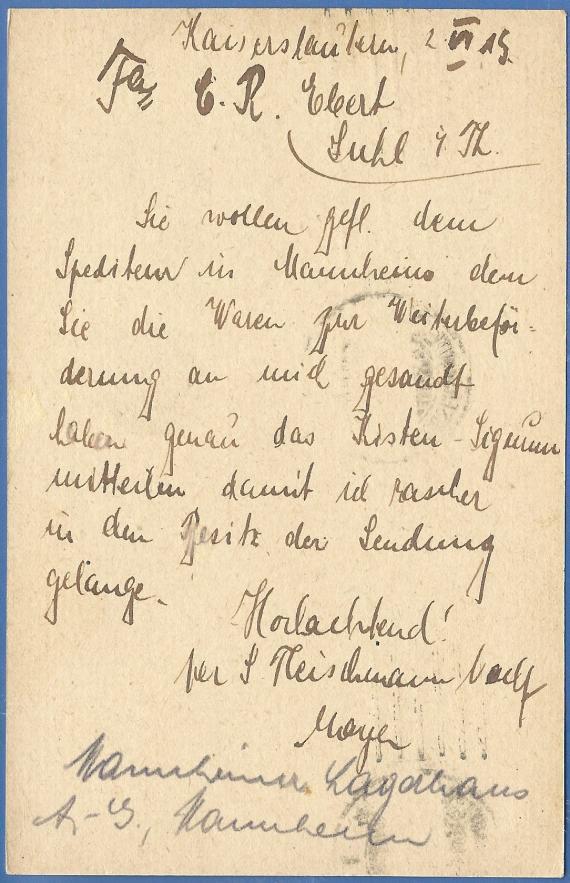 Kaiserslautern, 2. VI 19.
Fa. C. R. Ebert
Suhl i Th.
Sie wollen gefl. dem
Spediteur in Mannheim dem
Sie die Waren zur Weiterbeför-
derung an mich gesandt
haben genau das Kisten-Signum
mitteilen damit ich rascher
in den Besitz der Sendung
gelange.
Hochachtend!
per S Fleischmann Nachf
Mayer
Mannheimer Lagerhaus
A.-G., Mannheim